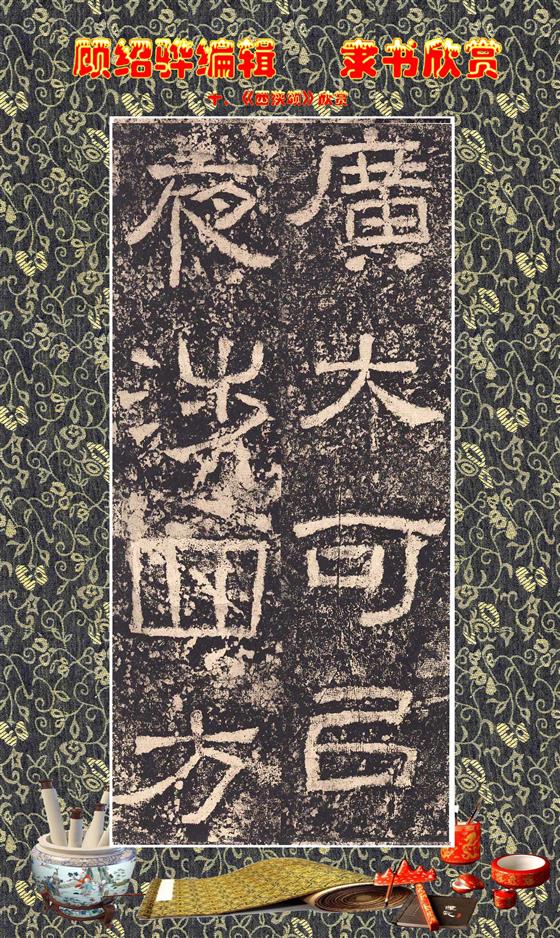 顾绍骅编辑 隶书欣赏
十、《西狭颂》欣赏
廣大可㠯
夜涉四方